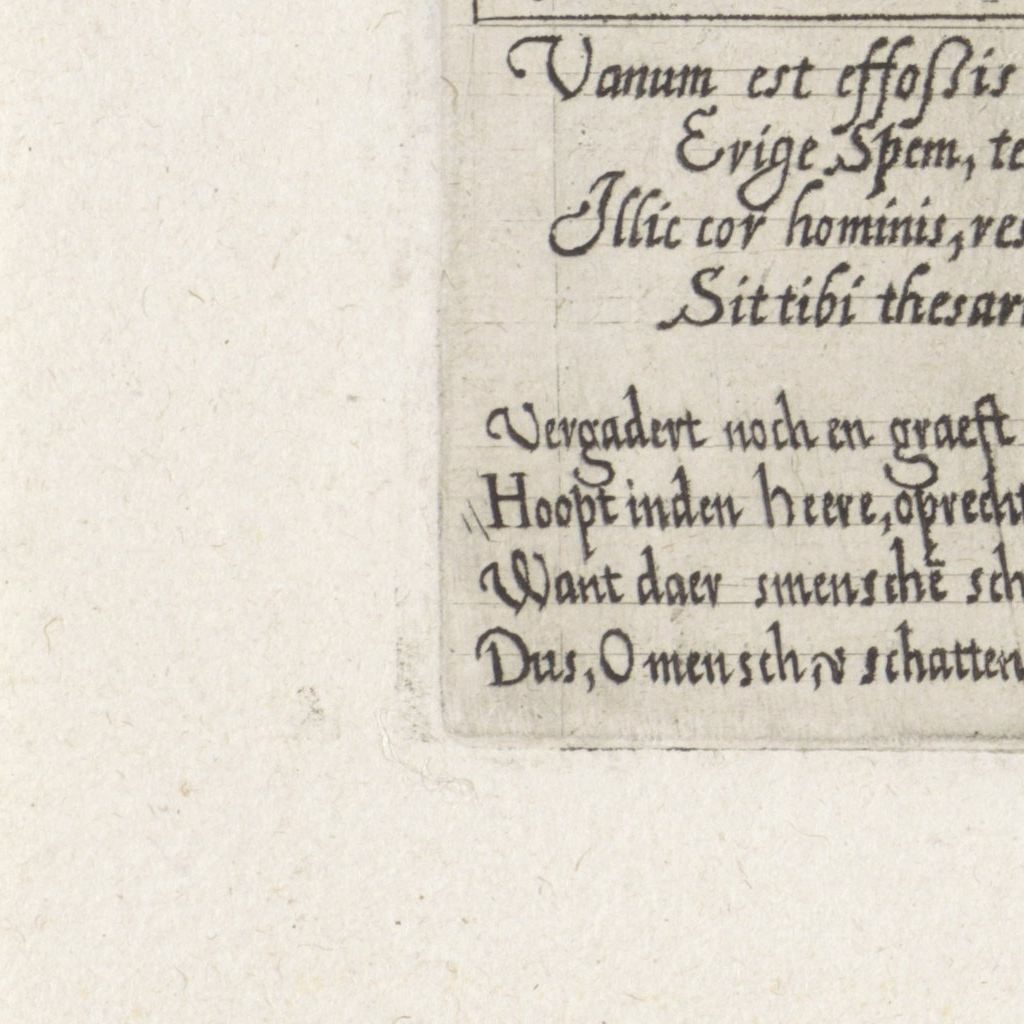 Vanum est effoßis
Erige Spem, te
Illic cor hominis, res
Sit tibi thesar
Vergadert noch en graeft
Hoopt inden heere, oprecht
Want daer smenschē sch
Dus, O mensch, v schatten